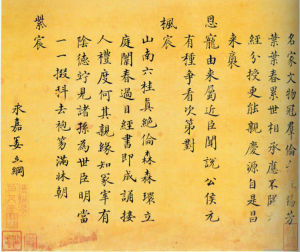 名家文物冠羣倫錫芳
葉葉春累世相承應不
經分授更能親慶源自是昌
來裔
恩寵由來屬近臣聞說公侯元
有種爭看次第對
楓宸
山南六桂真絕倫森森環立
庭闈春過目經書即成誦接
人禮度何其親緣知冢宰有
陰德竚見諸孫為世臣明當
一一掇科去袍笏滿牀朝
紫宸
永嘉姜立綱